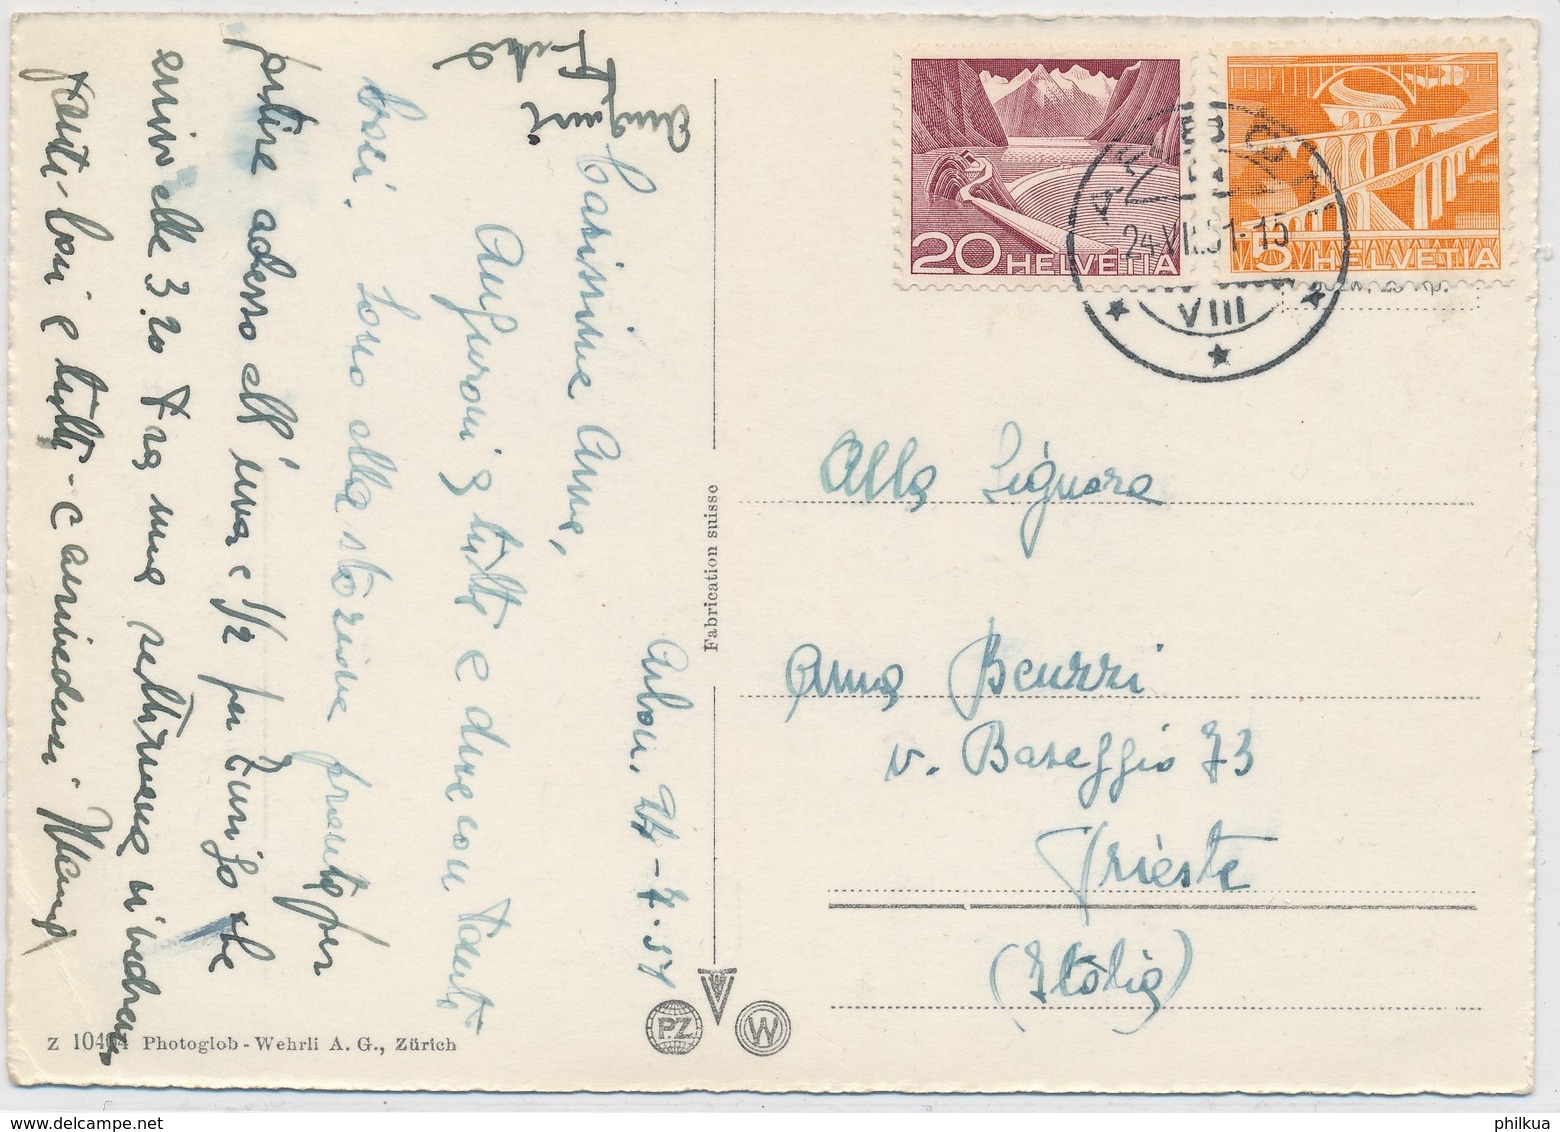 Arbon, 24-7.51
Carissima Anna,
Auguroni a tutte e due con tanti
baci. Sono alla stazione pronta per
partire adesso all' una e 1/2 per Zurigo che
arrivo alle 3.20 Fra una settimana vi vedremo
tanti baci a tutti - e arrivederci
Fabrication suisse
Z 10404 Photoglob - Wehrli A. G., Zürich
P.Z
W
20 HELVETIA
5 HELVETIA
24.VII.51-15
VIII
Alla Signora
Anna Beuzzi
v. Baseggio 73
Trieste
(Italia)
philkua
www.delcampe.net